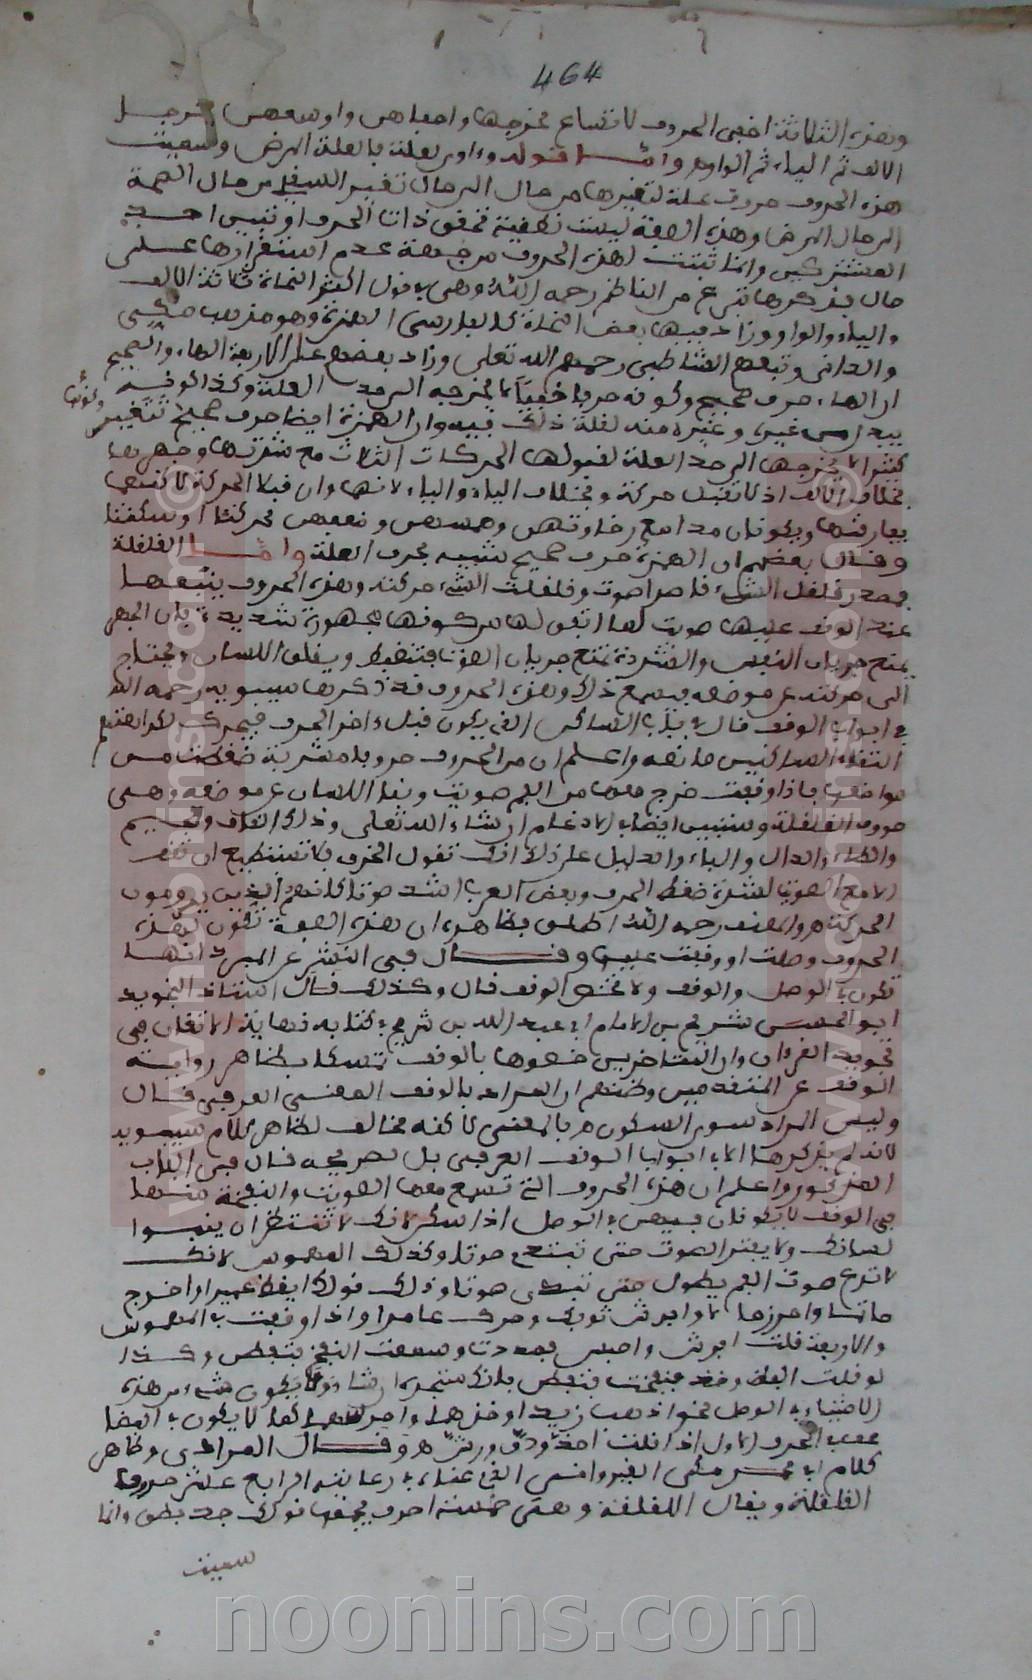 464
وهذه الثلاثة اخفى الحروف لاتساع مخرجها واخفاهن واوسعهن مخرجا
الالف ثم الياء ثم الواو واما قوله وءاوى لعلة فالعلة المرض وسميت
هذه الحروف حروف علة لتغيرها من حال الى حال تغير السقيم من حال الصحة
الى حال المرض وهذه الصفة ليست تحقق ذات الحرف او تبين احد
المشتركين وانما ثبتت لهذه الحروف من جهة عدم استقرارها على
حال فذكرها تبرع من الناظم رحمه الله وهى في قول اكثر النحاة ثلاثة الالف
والياء والواو وزاد فيها بعض النحاة كالفارسى الهمزة وهو مذهب مكى
والدانى وتبعهم الشاطبى رحمهم الله تعلى وزاد بعضهم على الاربعة الهاء والصحيح
ان الهاء حرف صحيح وكونه حرفا خفيا لا يخرجه الى حد العلة وكذا لوقـ وكونها
يبدل من غيره وغيره منه لقلة ذلك فيه وان الهمزة ايضا حرف صحيح تتغير
كثيرا لا يخرجها الى حد العلة لقبولها الحركات الثلاث مع شدتها وجهرها
بخلاف الالف اذ لا تقبل حركة وبخلاف الياء والواو لانهما وان قبلا الحركة لاكنهما
يفارقنها ويكونان مدا مع رخاوتهن وهمسهن وضعفهن تحركتا او سكنتا
وقال بعضهم ان الهمزة حرف صحيح شبيه بحرف العلة واما القلقلة
فمصدر قلقل الشىء فلا صرا صوت وقلقلت الشىء حركته وهذه الحروف يتبعها
عند الوقف عليها صوت لما اتفق لها من كونها مجهورة شديدة فان الجهر
يمنع جريان النفس والشدة تمنع جريان الصوت فتنضغط ويقلق اللسان ويحتاج
الى حركته عن موضعه فيسمع ذلك وهذه الحروف قد ذكرها سيبويه رحمه الله
في ابواب الوقف قال في باب الساكن الذي يكون قبل ءاخر الحروف فيحرك لكراهتهم
التقاء الساكنين ما نصه واعلم ان من الحروف حروفا مشربة ضغطت من
مواضعها فاذا وقفت خرج معها من الفم صويت ونبا اللسان عن موضعه وهى
حروف القلقلة وستبين ايضا في الادغام ان شاء الله تعلى وذلك القاف والجيم
والطاء والدال والباء والدليل على ذلك انك تقول الخرق فلا تستطيع ان تقف
الا مع الصويت لشدة ضغط الحرف وبعض العرب اشد صوتا كانهم الذين يرومون
الحركة هـ والمصنف رحمه الله اطلق بظاهره ان هذه الصفة تكون لهذه
الحروف وصلت او وقفت عليها وقال فى النشر عن المبرد انها
تكون في الوصل والوقف ولا تختص الوقف قال وكذلك قال استاذ التجويد
ابو الحسن شريح بن الامام ابي عبد الله بن شريح في كتابه نهاية الاتقان فى
تجويد القرءان وان المتاخرين خصوها بالوقف تمسكا بظاهر رواية
الوقف عن المتقدمين وظنهم ان المراد بالوقف المعنى العرفى قال
وليس المراد سوى السكون هـ بالمعنى لاكنه مخالف لظاهر كلام سيبويه
لانه لم يذكرها الا في ابواب الوقف العرفى بل تصريحه قال فى الباب
المذكور واعلم ان هذه الحروف التى تسمع معها الصويت والنفخة منها
فى الوقف لا يكونان فيهن في الوصل اذا سكن لانك لا تنتظر ان ينبوا
لسانك ولا يفتر الصوت حتى تبتدى صوتا وكذلك المهموس لانك
لا تدع صوت الفم يطول حتى تبتدى صوتا وذلك قولك ايقظ عميرا واخرج
حاتما واحرز مالا وافرش ثوبك وحرك عامرا واذا وقفت في المهموس
والاربعة قلت افرش واحبس فمددت وسمعت النفخ فتفطن وكذا
لو قلت الفظ وخذ فنفخت فتفطن فانك ستجده ان شاء الله ولا يكون شىء من هذه
الاشياء في الوصل نحو اذهب زيدا وخذهما واحرسهما كما لا يكون في المضاـ
عف في الحرف الاول اذا قلت احذ ودق ورش هـ وقال المرادى وظاهر
كلام ابي محمد مكى القيروانى الذى عناه في رعايته الرابع عشر حروف
القلقلة ويقال اللقلقة وهى خمسة احرف يجمعها قولك جد بطق وانما
سميت
noonins.com